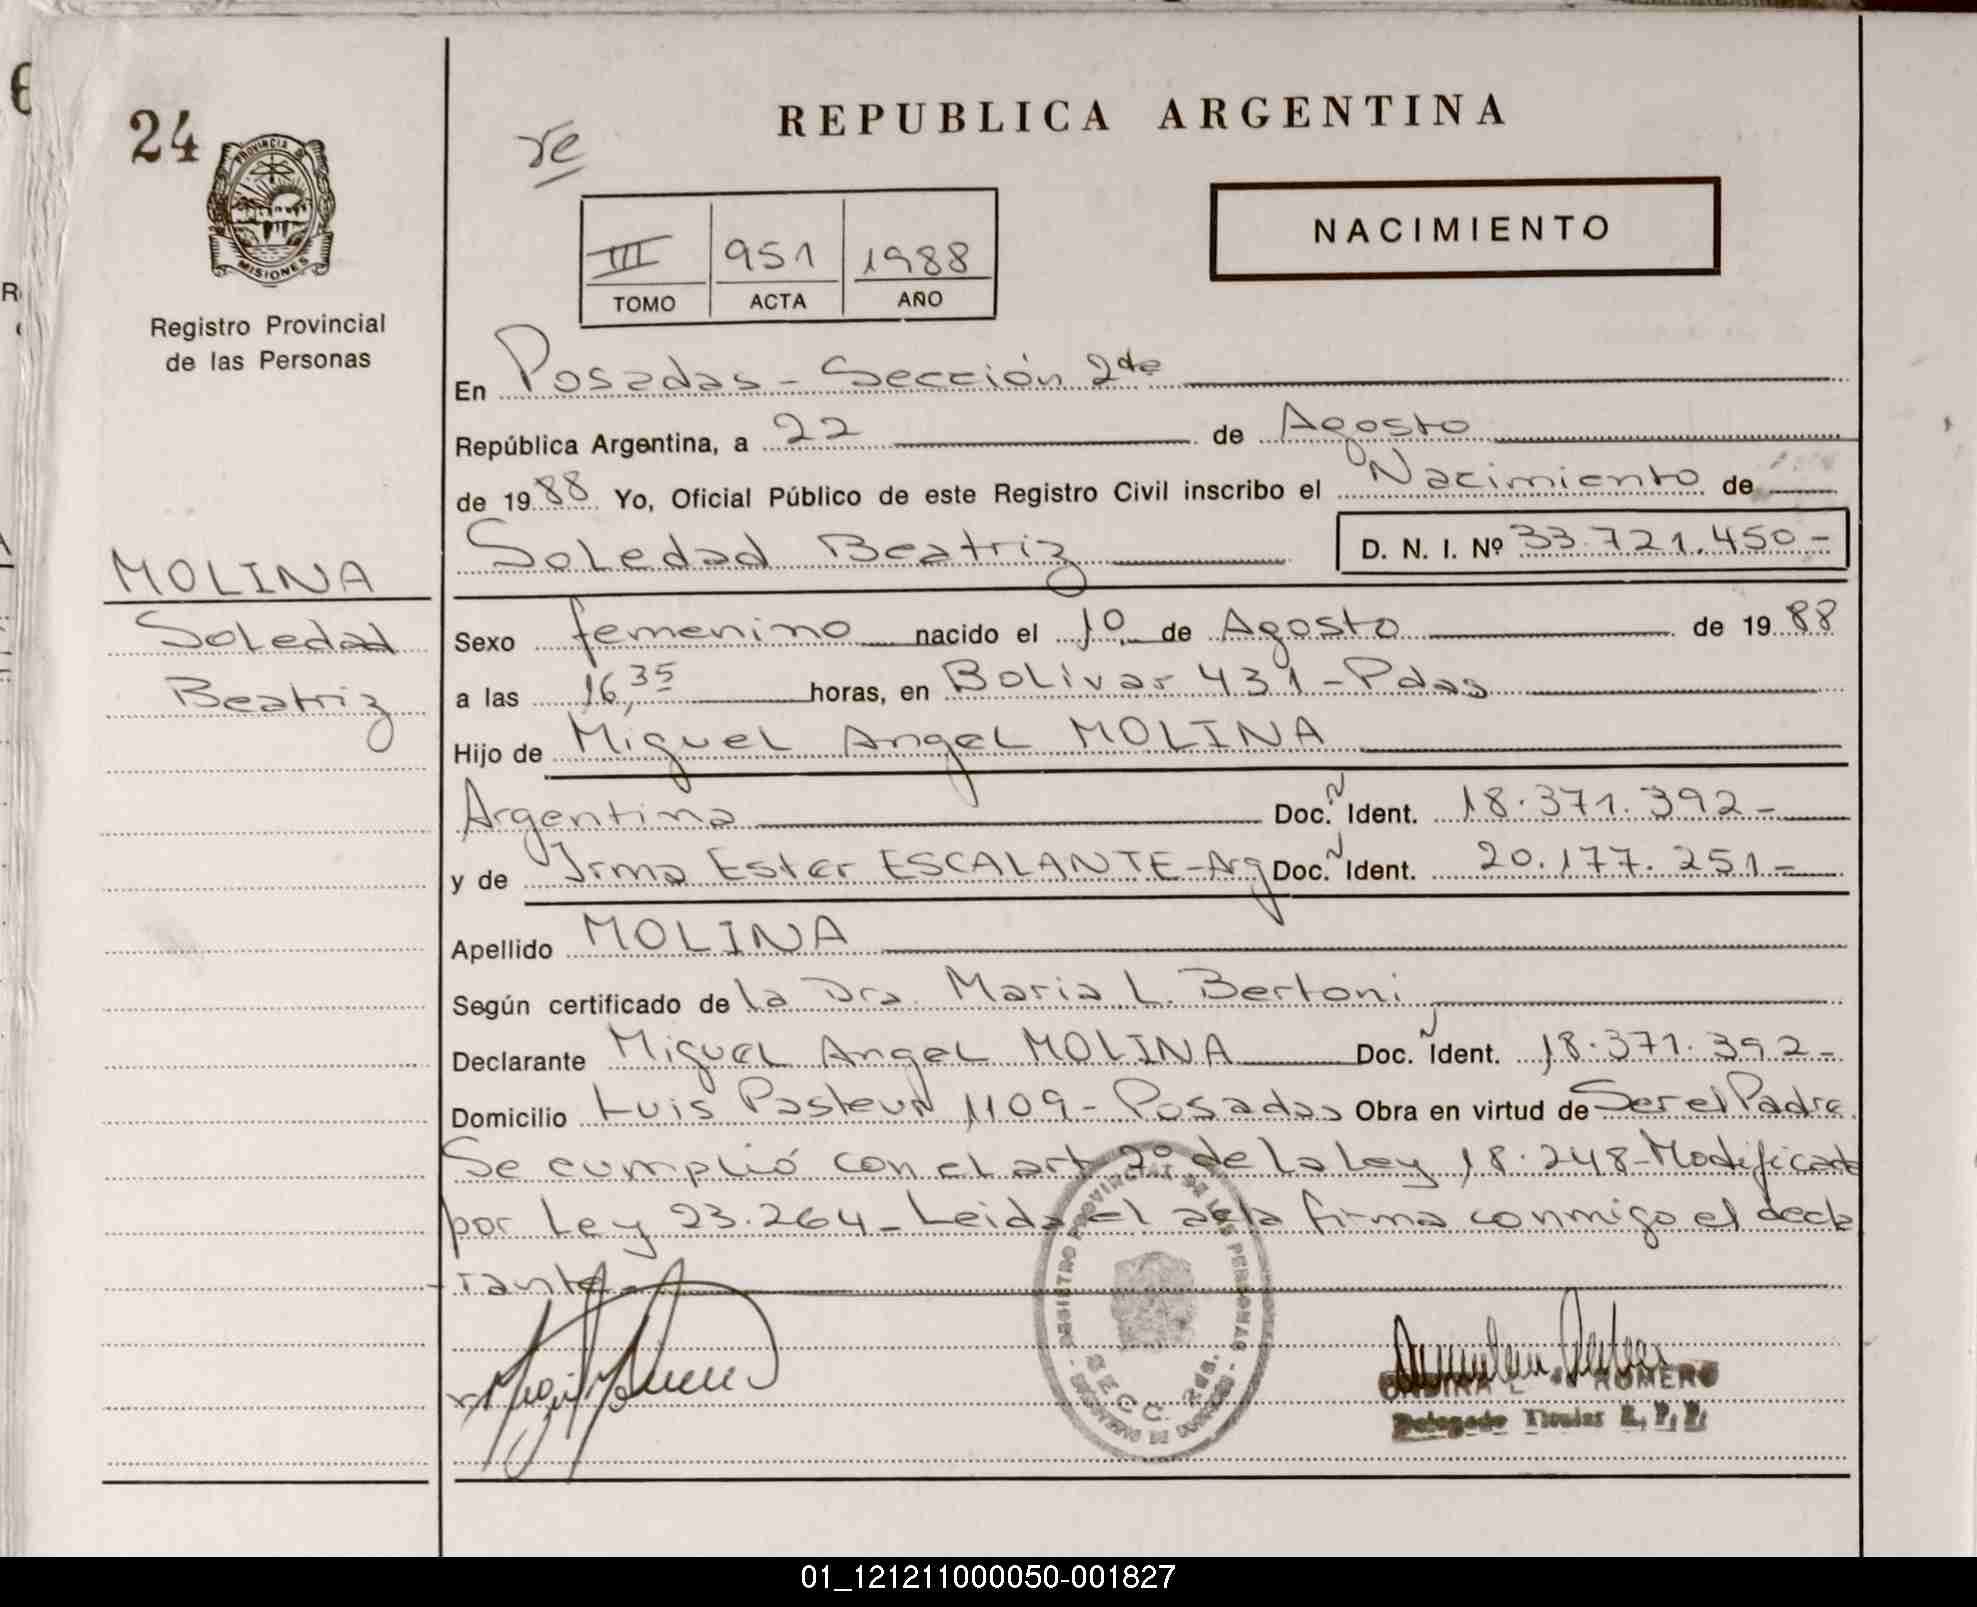 24
PROVINCIA DE
MISIONES
Registro Provincial
de las Personas
MOLINA
Soledad
Beatriz
REPUBLICA ARGENTINA
NACIMIENTO
III 951 1988
TOMO ACTA AÑO
En Posadas - Sección 2da
República Argentina, a 22 de Agosto
de 1988 Yo, Oficial Público de este Registro Civil inscribo el Nacimiento de
Soledad Beatriz D. N. I. Nº 33.721.450-
Sexo femenino nacido el 1º de Agosto de 1988
a las 16,35 horas, en Bolívar 431 - Pdas
Hijo de Miguel Angel MOLINA
Argentina Doc. Ident. 18.371.392-
y de Irma Ester ESCALANTE-Arg Doc. Ident. 20.177.251-
Apellido MOLINA
Según certificado de la Dra. Maria L. Bertoni
Declarante Miguel Angel MOLINA Doc. Ident. 18.371.392-
Domicilio Luis Pasteur 1109 - Posadas Obra en virtud de Ser el Padre
Se cumplió con el art 2º de la Ley 18.248-Modificada
por Ley 23.264-Leida el acta firma conmigo el decla
-rante-
REGISTRO PROVINCIAL DE LAS PERSONAS
SECC. 2da.
ROMERO
Delegado Titular R.P.P.
01_121211000050-001827